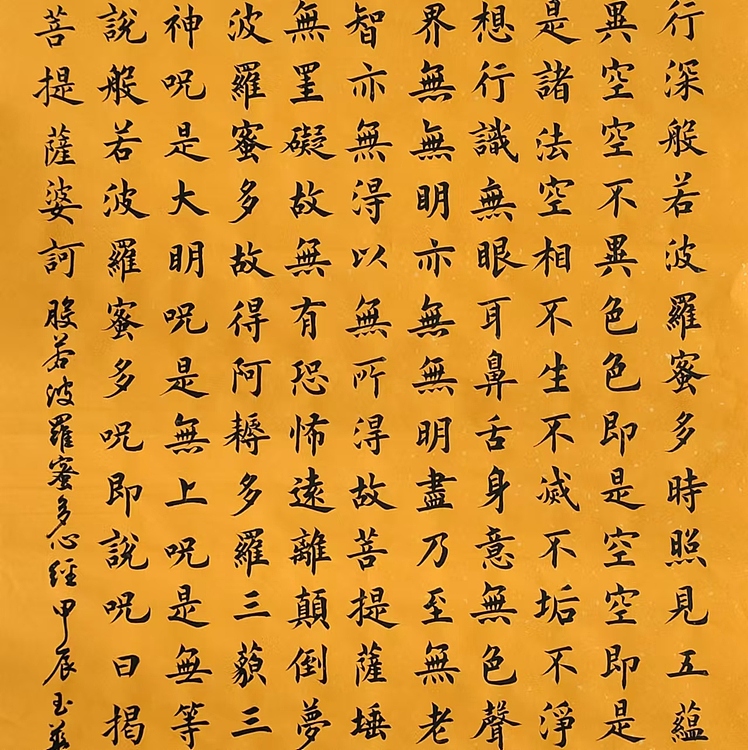 行深般若波羅蜜多時照見五蘊
異空空不異色色即是空空即是
是諸法空相不生不滅不垢不淨
想行識無眼耳鼻舌身意無色聲
界無無明亦無無明盡乃至無老
智亦無得以無所得故菩提薩埵
無罣礙故無有恐怖遠離顛倒夢
波羅蜜多故得阿耨多羅三藐三
神呪是大明呪是無上呪是無等
說般若波羅蜜多呪即說呪曰揭
菩提薩婆訶 般若波羅蜜多心經甲辰玉